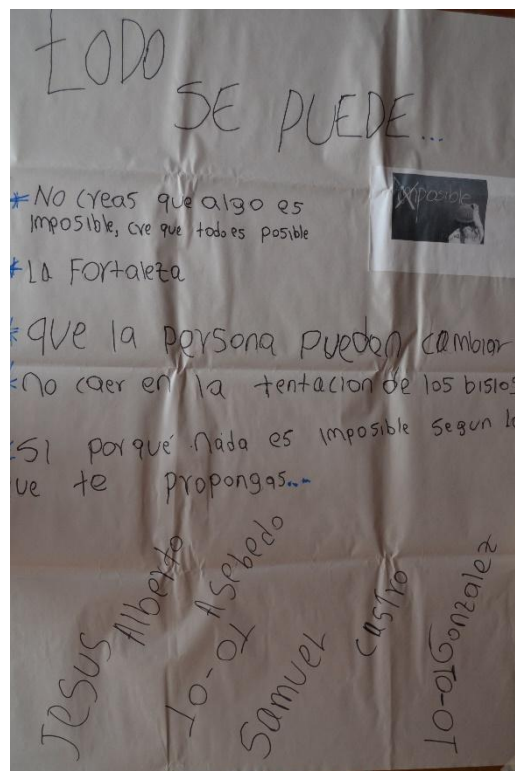 tODO
SE PUEDE...
imposible
* No creas que algo es
imposible, cre que todo es posible
* LA Fortaleza
* que la persona pueden cambiar
* no caer en la tentacion de los bisios
* SI porqué nada es imposible segun lo
ue te propongas...
Jesus Alberto
10-01 Asebedo
Samuel Castro
10-01 Gonzalez